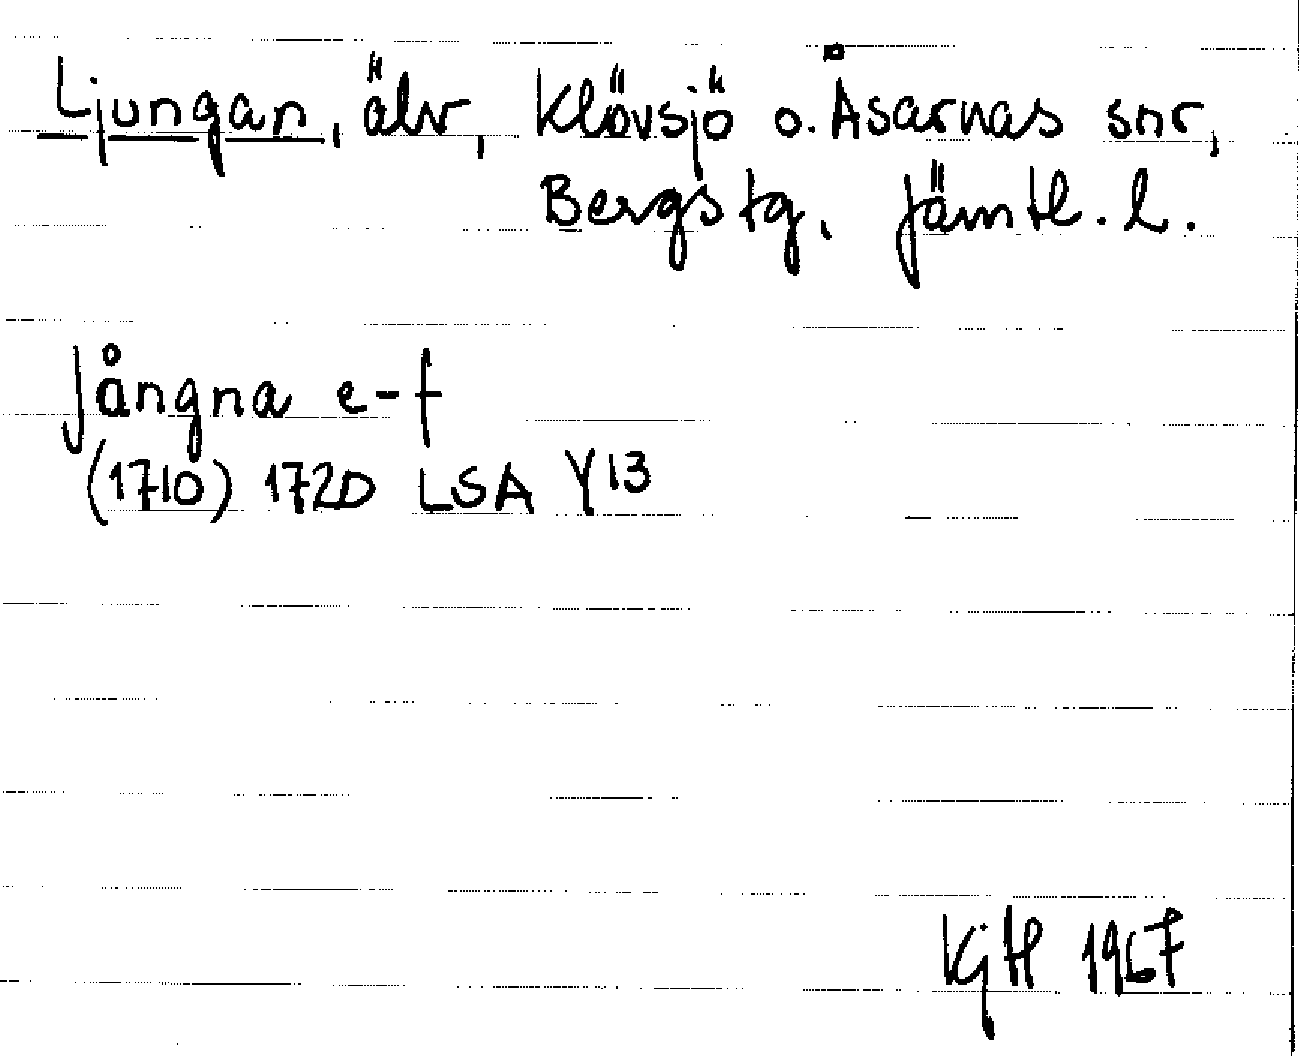 Ljungan, älv, Klövsjö o. Åsarnas snr,
Bergs tg, Jämtl. l.
Jångna e-f
(1710) 1720 LSA Y13
KjH 1967